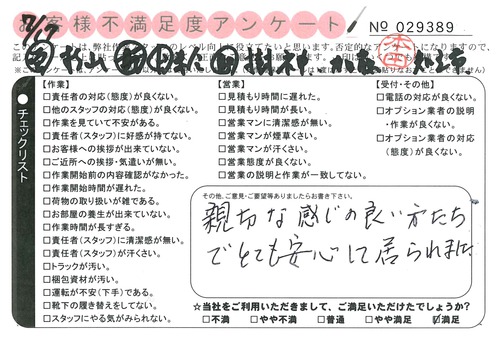 お客様不満足度アンケート
No 029389
チェックリスト
【作業】
□責任者の対応(態度)が良くない。
□他のスタッフの対応(態度)が良くない。
□作業を見ていて不安がある。
□責任者(スタッフ)に好感が持てない。
□お客様への挨拶が出来ていない。
□ご近所への挨拶・気遣いが無い。
□作業開始前の内容確認がなかった。
□作業開始時間が遅れた。
□荷物の取り扱いが雑である。
□お部屋の養生が出来ていない。
□作業時間が長すぎる。
□責任者(スタッフ)に清潔感が無い。
□責任者(スタッフ)が汗くさい。
□トラックが汚い。
□梱包資材が汚い。
□運転が不安(下手)である。
□靴下の履き替えをしてない。
□スタッフにやる気がみられない。
【営業】
□見積もり時間に遅れた。
□見積もり時間が長い。
□営業マンに清潔感が無い。
□営業マンが煙草くさい。
□営業マンが汗くさい。
□営業態度が良くない。
□営業の説明と作業が一致してない。
【受付・その他】
□電話の対応が良くない。
□オプション業者の説明
・作業が良くない。
□オプション業者の対応
(態度)が良くない。
その他、ご意見・ご要望等ありましたらお書き下さい。
親切な感じの良い方たち
でとても安心して居られました
☆当社をご利用いただきまして、ご満足いただけたでしょうか?
□不満 □やや不満 □普通 □やや満足 ☑満足